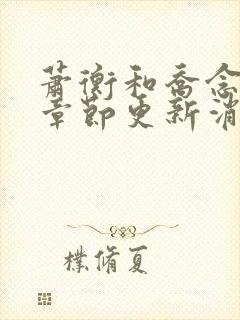 萧衡和乔念
章节更新消
樸脩夏